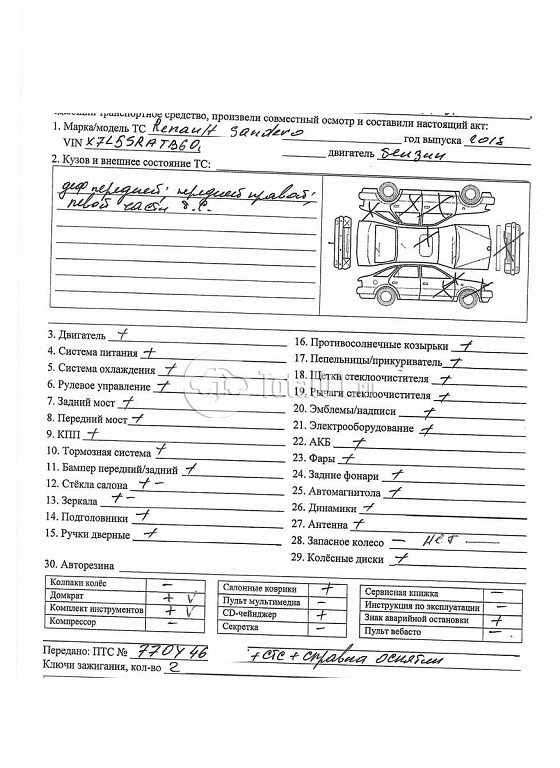 транспортное средство, произвели совместный осмотр и составили настоящий акт:
1. Марка/модель ТС Renault Sandero год выпуска 2018
VIN X7L5SRATB60 двигатель бензин
2. Кузов и внешнее состояние ТС:
деф передней, передней правой,
левой части т.с.
3. Двигатель +
4. Система питания +
5. Система охлаждения +
6. Рулевое управление +
7. Задний мост +
8. Передний мост +
9. КПП +
10. Тормозная система +
11. Бампер передний/задний +
12. Стёкла салона + -
13. Зеркала + -
14. Подголовники +
15. Ручки дверные +
16. Противосолнечные козырьки +
17. Пепельницы/прикуриватель +
18. Щетки стеклоочистителя +
19. Рычаги стеклоочистителя +
20. Эмблемы/надписи +
21. Электрооборудование +
22. АКБ +
23. Фары +
24. Задние фонари +
25. Автомагнитола +
26. Динамики +
27. Антенна +
28. Запасное колесо — нет —
29. Колёсные диски +
30. Авторезина
Колпаки колёс -
Домкрат + V
Комплект инструментов + V
Компрессор -
Салонные коврики +
Пульт мультимедиа -
CD-чейнджер +
Секретка -
Сервисная книжка -
Инструкция по эксплуатации -
Знак аварийной остановки +
Пульт вебасто -
Передано: ПТС № 770446 + СТС + справка
Ключи зажигания, кол-во 2